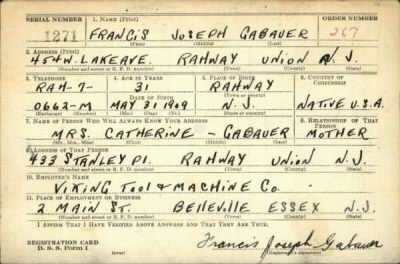 SERIAL NUMBER 1. NAME (Print) ORDER NUMBER
1271 FRANCIS JOSEPH GABAUER 267
(First) (Middle) (Last)
2. ADDRESS (Print)
454 W. LAKE AVE. RAHWAY UNION N.J.
(Number and street or R. F. D. number) (Town) (County) (State)
3. TELEPHONE 4. AGE IN YEARS 5. PLACE OF BIRTH 6. COUNTRY OF CITIZENSHIP
RAH-7- 31 RAHWAY
DATE OF BIRTH (Town or county)
0662-M MAY 31 1909 N.J. NATIVE U.S.A.
(Exchange) (Number) (Mo.) (Day) (Yr.) (State or country)
7. NAME OF PERSON WHO WILL ALWAYS KNOW YOUR ADDRESS 8. RELATIONSHIP OF THAT PERSON
MRS. CATHERINE - GABAUER MOTHER
(Mr., Mrs., Miss) (First) (Middle) (Last)
9. ADDRESS OF THAT PERSON
433 STANLEY Pl. RAHWAY UNION N.J.
(Number and street or R. F. D. number) (Town) (County) (State)
10. EMPLOYER'S NAME
VIKING TOOL & MACHINE CO.
11. PLACE OF EMPLOYMENT OR BUSINESS
2 MAIN ST. Belleville ESSEX N.J.
(Number and street or R. F. D. number) (Town) (County) (State)
I AFFIRM THAT I HAVE VERIFIED ABOVE ANSWERS AND THAT THEY ARE TRUE.
REGISTRATION CARD
D. S. S. Form 1 (over) Francis Joseph Gabauer
(Registrant's signature)